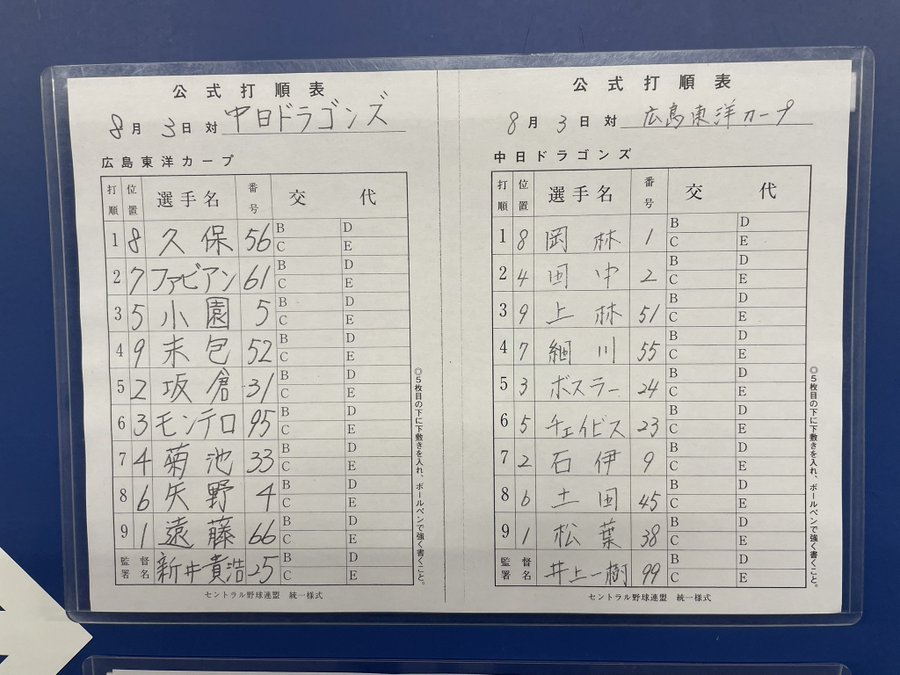 公式打順表
8月 3日 対 中日ドラゴンズ
広島東洋カープ
打順 位置 選手名 番号 交 代
1 8 久保 56 B D C E
2 7 ファビアン 61 B D C E
3 5 小園 5 B D C E
4 9 末包 52 B D C E
5 2 坂倉 31 B D C E
6 3 モンテロ 95 B D C E
7 4 菊池 33 B D C E
8 6 矢野 4 B D C E
9 1 遠藤 66 B D C E
監督署名 新井貴浩 25 B D C E
◎5枚目の下に下敷きを入れ、ボールペンで強く書くこと。
セントラル野球連盟 統一様式
公式打順表
8月 3日 対 広島東洋カープ
中日ドラゴンズ
打順 位置 選手名 番号 交 代
1 8 岡林 1 B D C E
2 4 田中 2 B D C E
3 9 上林 51 B D C E
4 7 細川 55 B D C E
5 3 ボスラー 24 B D C E
6 5 チェイビス 23 B D C E
7 2 石伊 9 B D C E
8 6 土田 45 B D C E
9 1 松葉 38 B D C E
監督署名 井上一樹 99 B D C E
◎5枚目の下に下敷きを入れ、ボールペンで強く書くこと。
セントラル野球連盟 統一様式